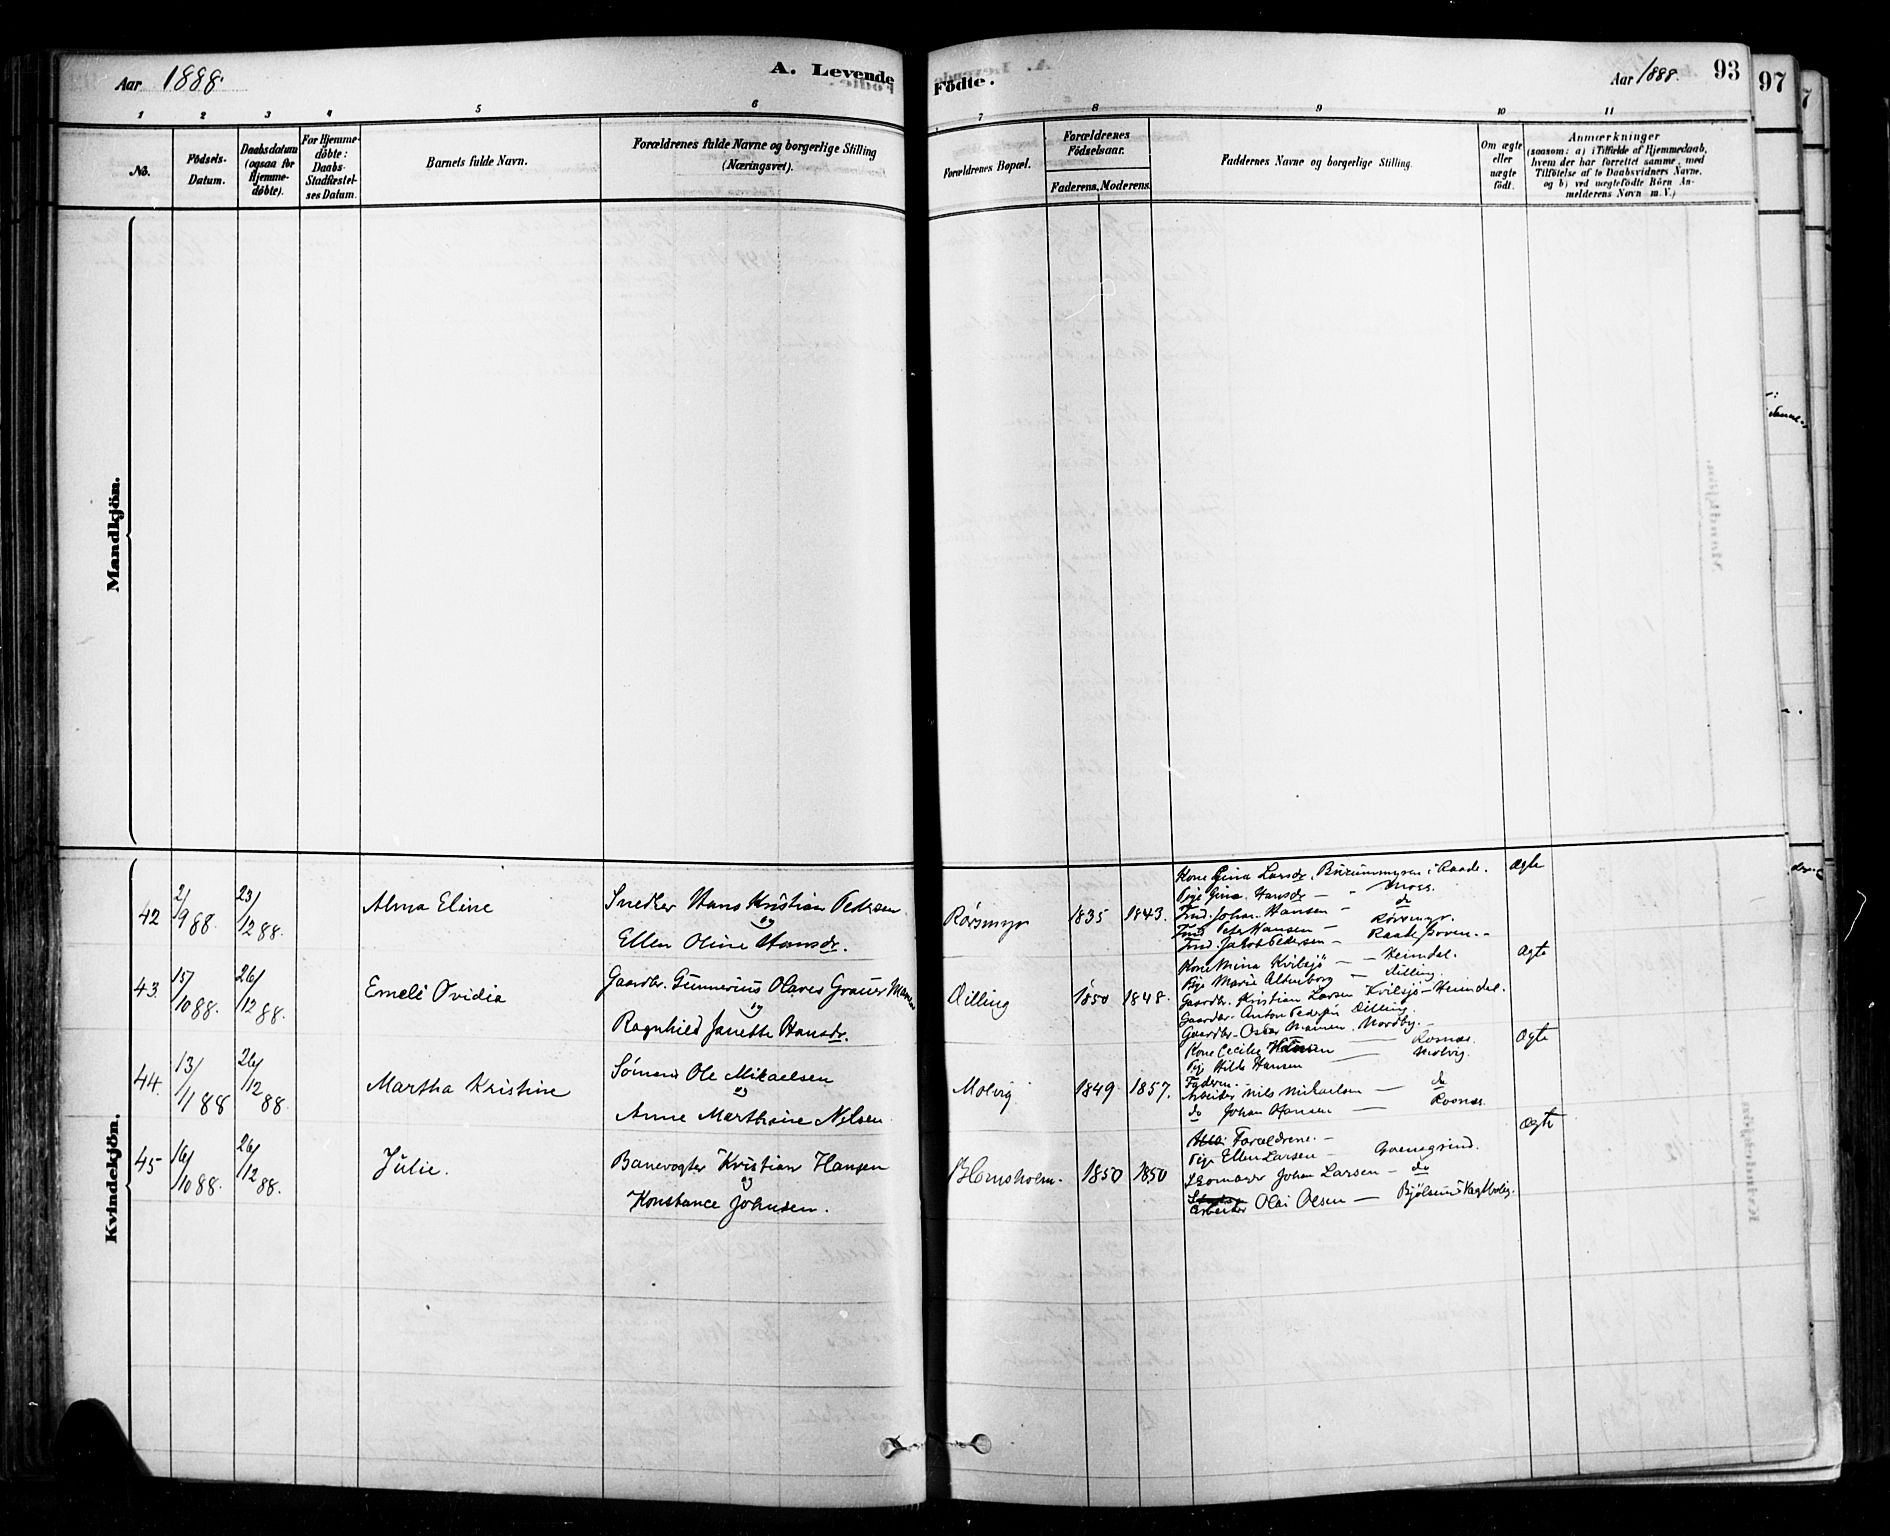 Aar 1888.
A. Levende
Födte.
Aar 1888.
93
97
1 2 3 4 5 6 7 8 9 10 11
No.
Födsels-Datum.
Daabsdatum (ogsaa for Hjemme-döbte).
For Hjemme-döbte: Daabs-Stadfæstel-ses Datum.
Barnets fulde Navn.
Forældrenes fulde Navne og borgerlige Stilling (Næringsvei).
Forældrenes Bopæl.
Forældrenes Födselsaar.
Faderens. Moderens.
Faddernes Navne og borgerlige Stilling.
Om ægte eller uægte födt.
Anmærkninger
(saasom: a) i Tilfælde af Hjemmedaab,
hvem der har forrettet samme, med
Tilföielse af to Daabsvidners Navne.
og b) ved uægtefödte Börn An-
melderens Navn m.V.)
Mandkjön.
Kvindekjön.
42 2/9 88. 23/12 88. Alma Eline
Snedker Hans Kristian Pedersen
og
Ellen Oline Hansdr.
Rørsmyr 1835 1843.
Kone Gina Larsdr. i Raade.
Pige Gina Hansdr — " Moss.
Ind. Johan Hansen — do
Ind. Peter Hansen — Rørsmyr.
Ind. Jakob Pedersen —
Ægte
43. 15/10 88. 26/12 88. Emeli Ovidia
Gaardbr. Gunnerius Olaves Grauer
og
Ragnhild Janette Hansdr.
Dilling 1850 1848.
Kone Mina Kvilesjø — Heimdal.
Pige Marie — Dilling.
Gaardbr. Kristian Larsen Kvilesjø — Heimdal.
Gaardbr. Anton Pedersen Dilling.
Gaardbr. Oscar Nordby.
Ægte
44. 13/11 88 26/12 88. Martha Kristine
Sømand Ole Mikaelsen
og
Anne Marthine Nilsen.
Molvig 1849 1857.
Kone Cecilie — Rosnæs.
Pige Hilda Hansen — Molvig.
Faderen.
Arbeider Nils Mikaelsen — do
do Johan Hansen — Rosnæs.
Ægte
45 16/10 88. 26/12 88. Julie.
Banevogter Kristian Hansen
og
Konstance Johnsen.
Blomsholm. 1850 1850
Forældrene.
Pige Ellen Larsen — Grønsgrind.
Johan Larsen — do
Arbeider Olai Olsen —
Ægte